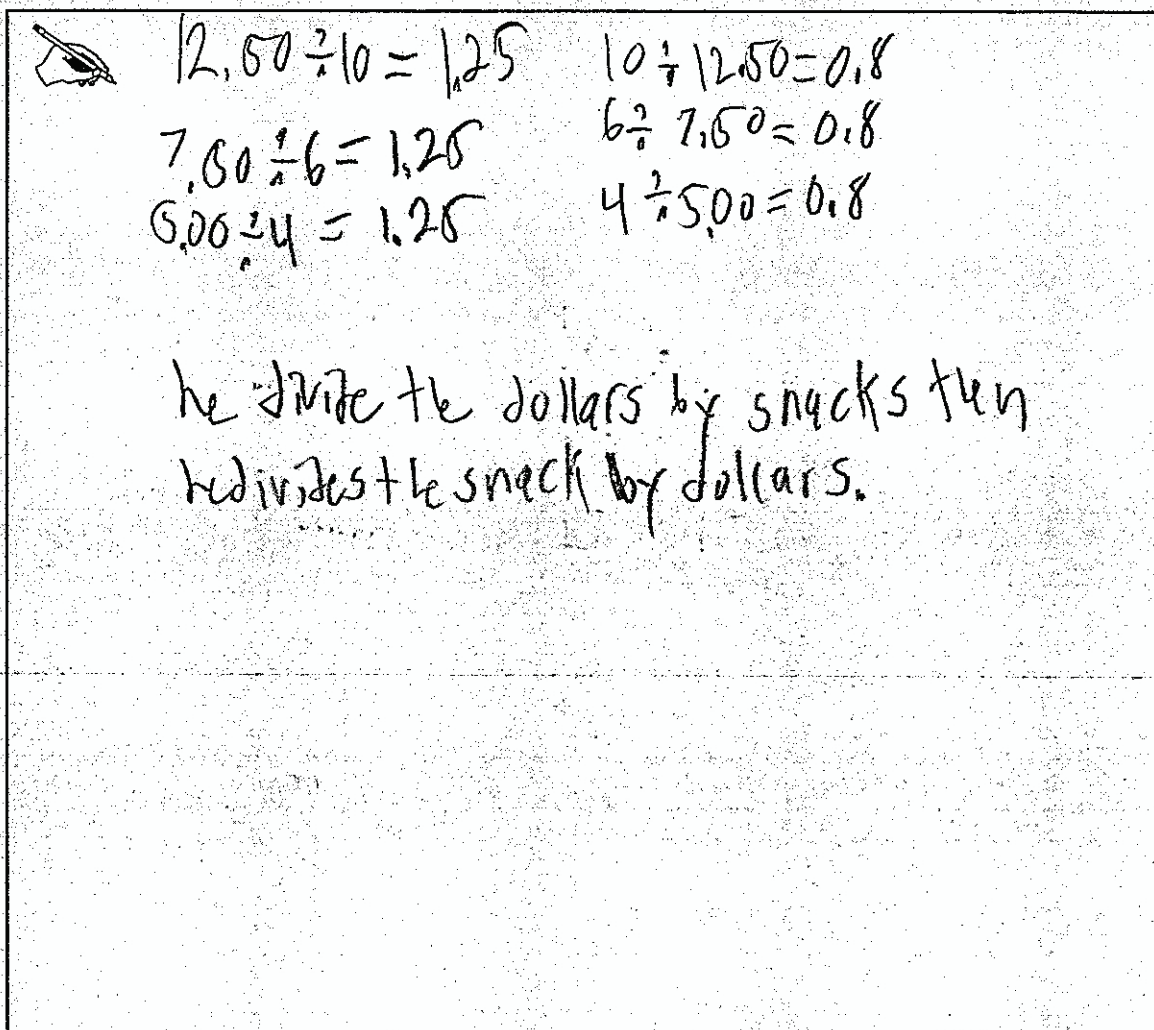 12.50 ÷ 10 = 1.25 10 ÷ 12.50 = 0.8
7.50 ÷ 6 = 1.25 6 ÷ 7.50 = 0.8
5.00 ÷ 4 = 1.25 4 ÷ 5.00 = 0.8
he divide the dollars by snacks then
he divides the snack by dollars.